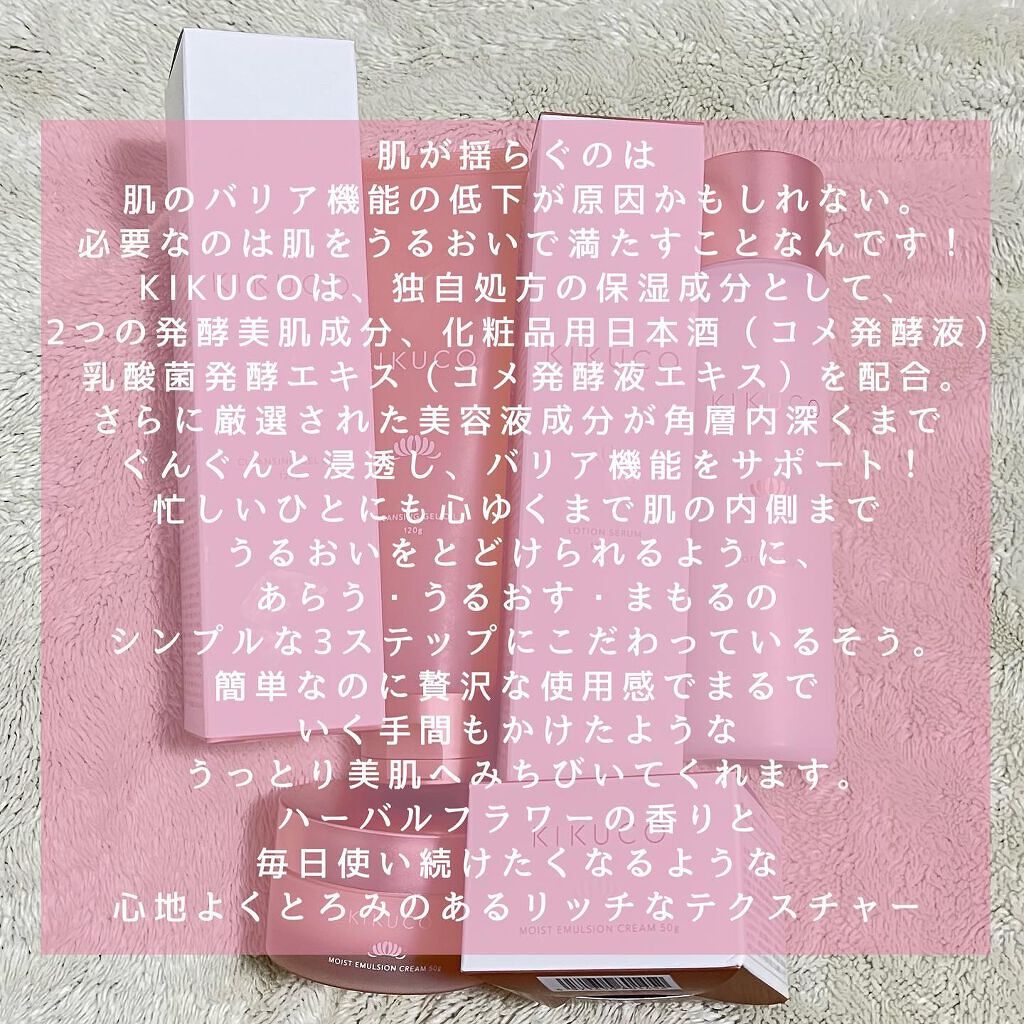 肌が揺らぐのは
肌のバリア機能の低下が原因かもしれない。
必要なのは肌をうるおいで満たすことなんです！
KIKUCOは、独自処方の保湿成分として、
2つの発酵美肌成分、化粧品用日本酒（コメ発酵液）
乳酸菌発酵エキス（コメ発酵液エキス）を配合。
さらに厳選された美容液成分が角層内深くまで
ぐんぐんと浸透し、バリア機能をサポート！
忙しいひとにも心ゆくまで肌の内側まで
うるおいをとどけられるように、
あらう・うるおす・まもるの
シンプルな3ステップにこだわっているそう。
簡単なのに贅沢な使用感でまるで
いく手間もかけたような
うっとり美肌へみちびいてくれます。
ハーバルフラワーの香りと
毎日使い続けたくなるような
心地よくとろみのあるリッチなテクスチャー
KIKUCO
KIKUCO
KIKUCO
KIKUCO
120g
LOTION SERUM
KIKUCO
MOIST EMULSION CREAM 50g
KIKUCO
MOIST EMULSION CREAM 50g